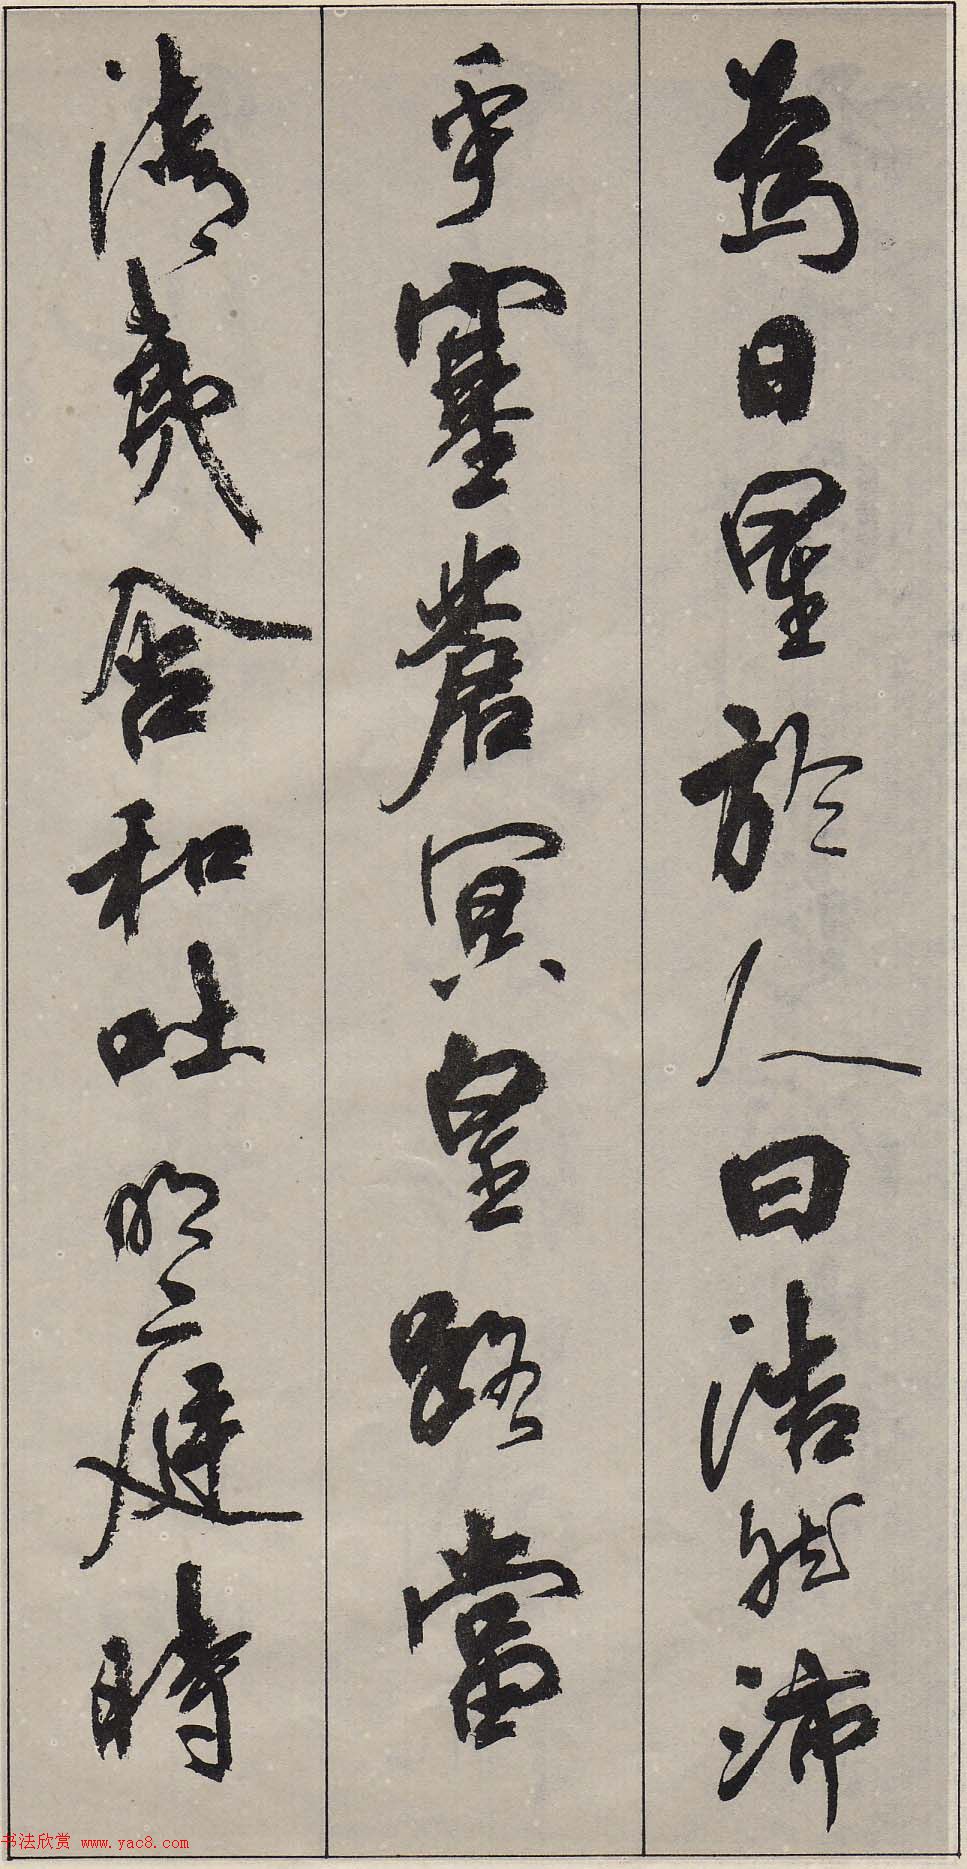 為日星於人曰浩然沛
乎塞蒼冥皇路當
清夷含和吐明庭時
书法欣赏 www.yac8.com